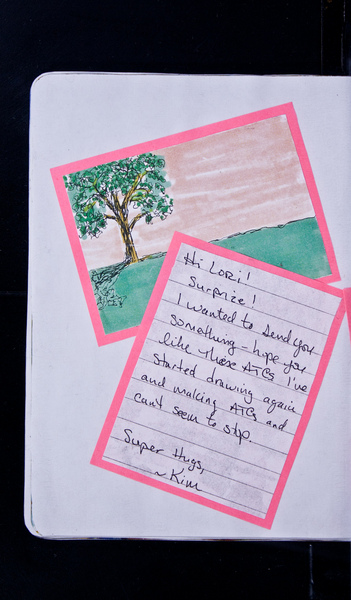 Hi Lori!
Surprize!
I wanted to send you
something - hope you
like these ATCs I've
started drawing again
and making ATCs and
can't seem to stop.
Super Hugs,
~ Kim